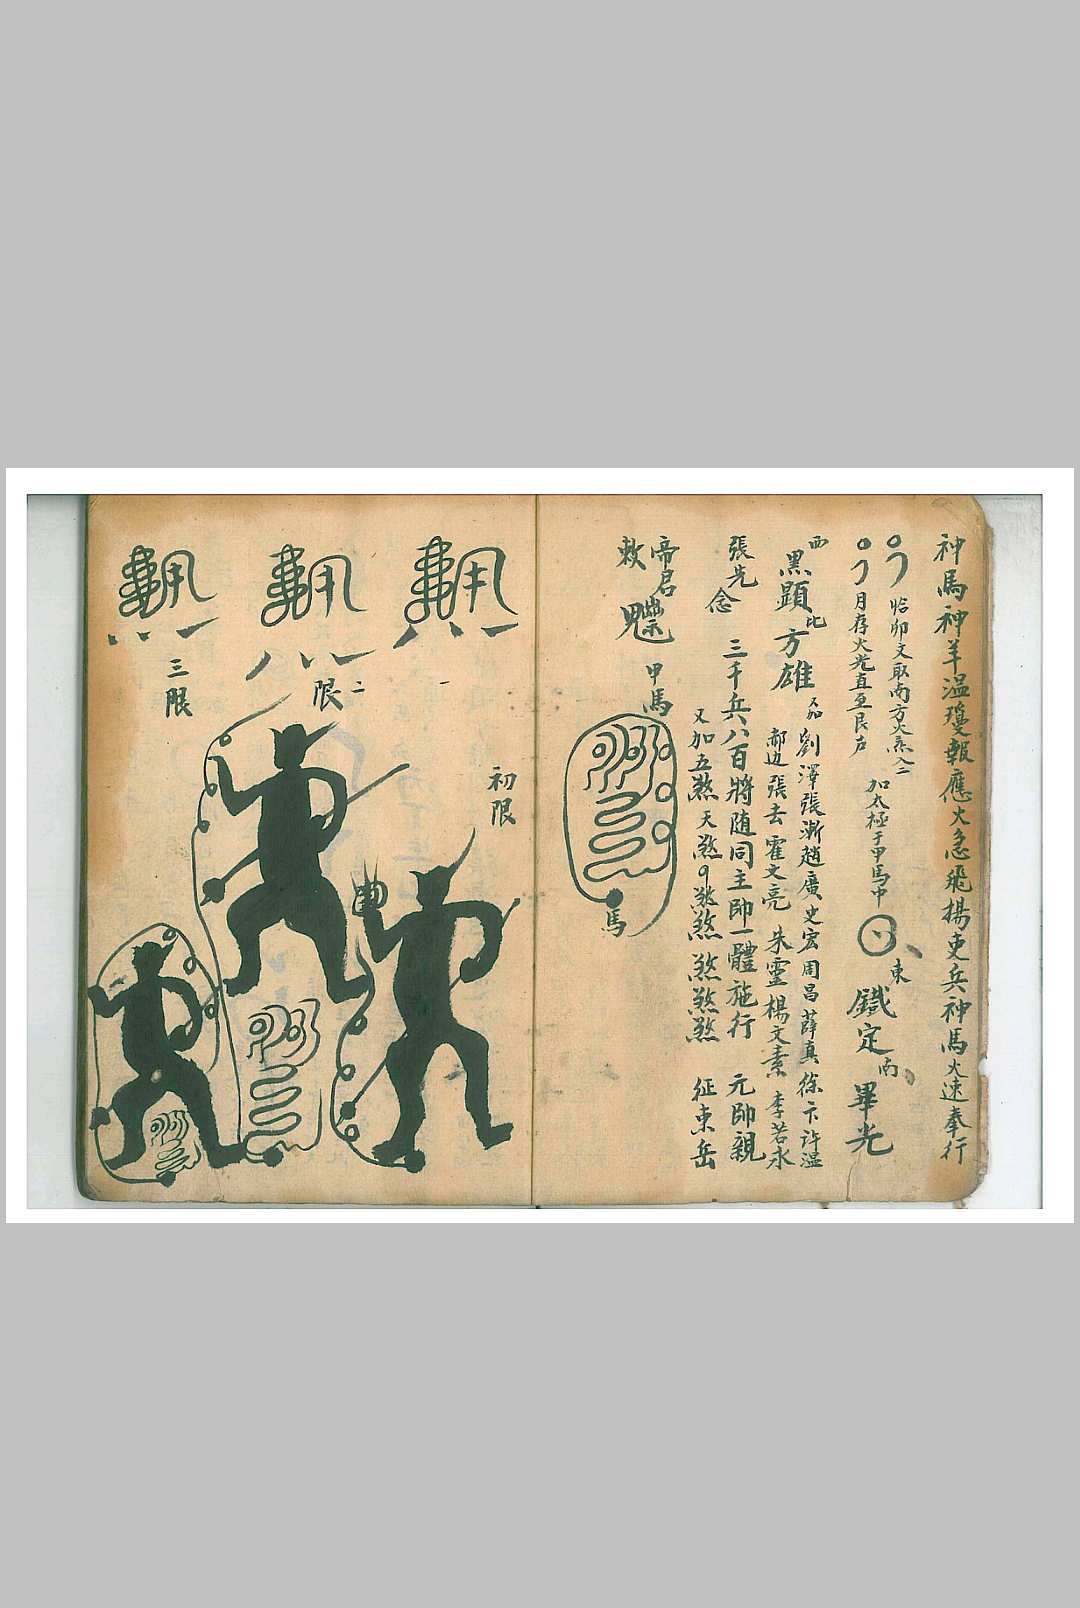 神馬神羊溫瓊報應火急飛揚吏兵神馬火速奉行
卯文取南方火炁入二
月存火光直至艮户
加太極于甲馬中
東
鐵定
南
畢光
西
黑顯
方雄
又加
劉澤張漸趙廣史宏周昌薛真徐卞許溫
張去霍文亮朱靈楊文素李若水
張先念
三千兵八百將随同主帥一體施行
元帥親
征東岳
又加五煞天煞
煞煞煞煞
帝君
敕
甲馬
馬
初限
一
二限
三限